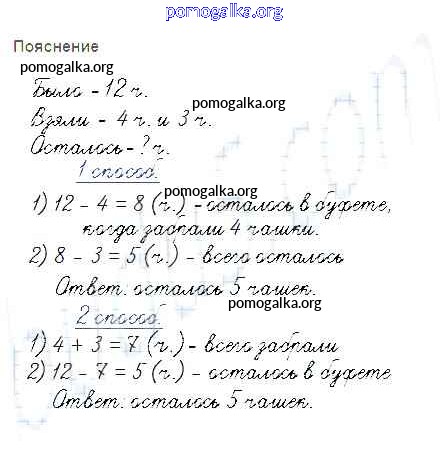 pomogalka.org
Пояснение
pomogalka.org
Было - 12 ч.
pomogalka.org
Взяли - 4 ч. и 3 ч.
Осталось - ? ч.
1 способ.
pomogalka.org
1) 12 - 4 = 8 (ч.) - осталось в буфете,
когда забрали 4 чашки.
2) 8 - 3 = 5 (ч.) - всего осталось
Ответ: осталось 5 чашек.
pomogalka.org
2 способ.
1) 4 + 3 = 7 (ч.) - всего забрали
2) 12 - 7 = 5 (ч.) - осталось в буфете
Ответ: осталось 5 чашек.